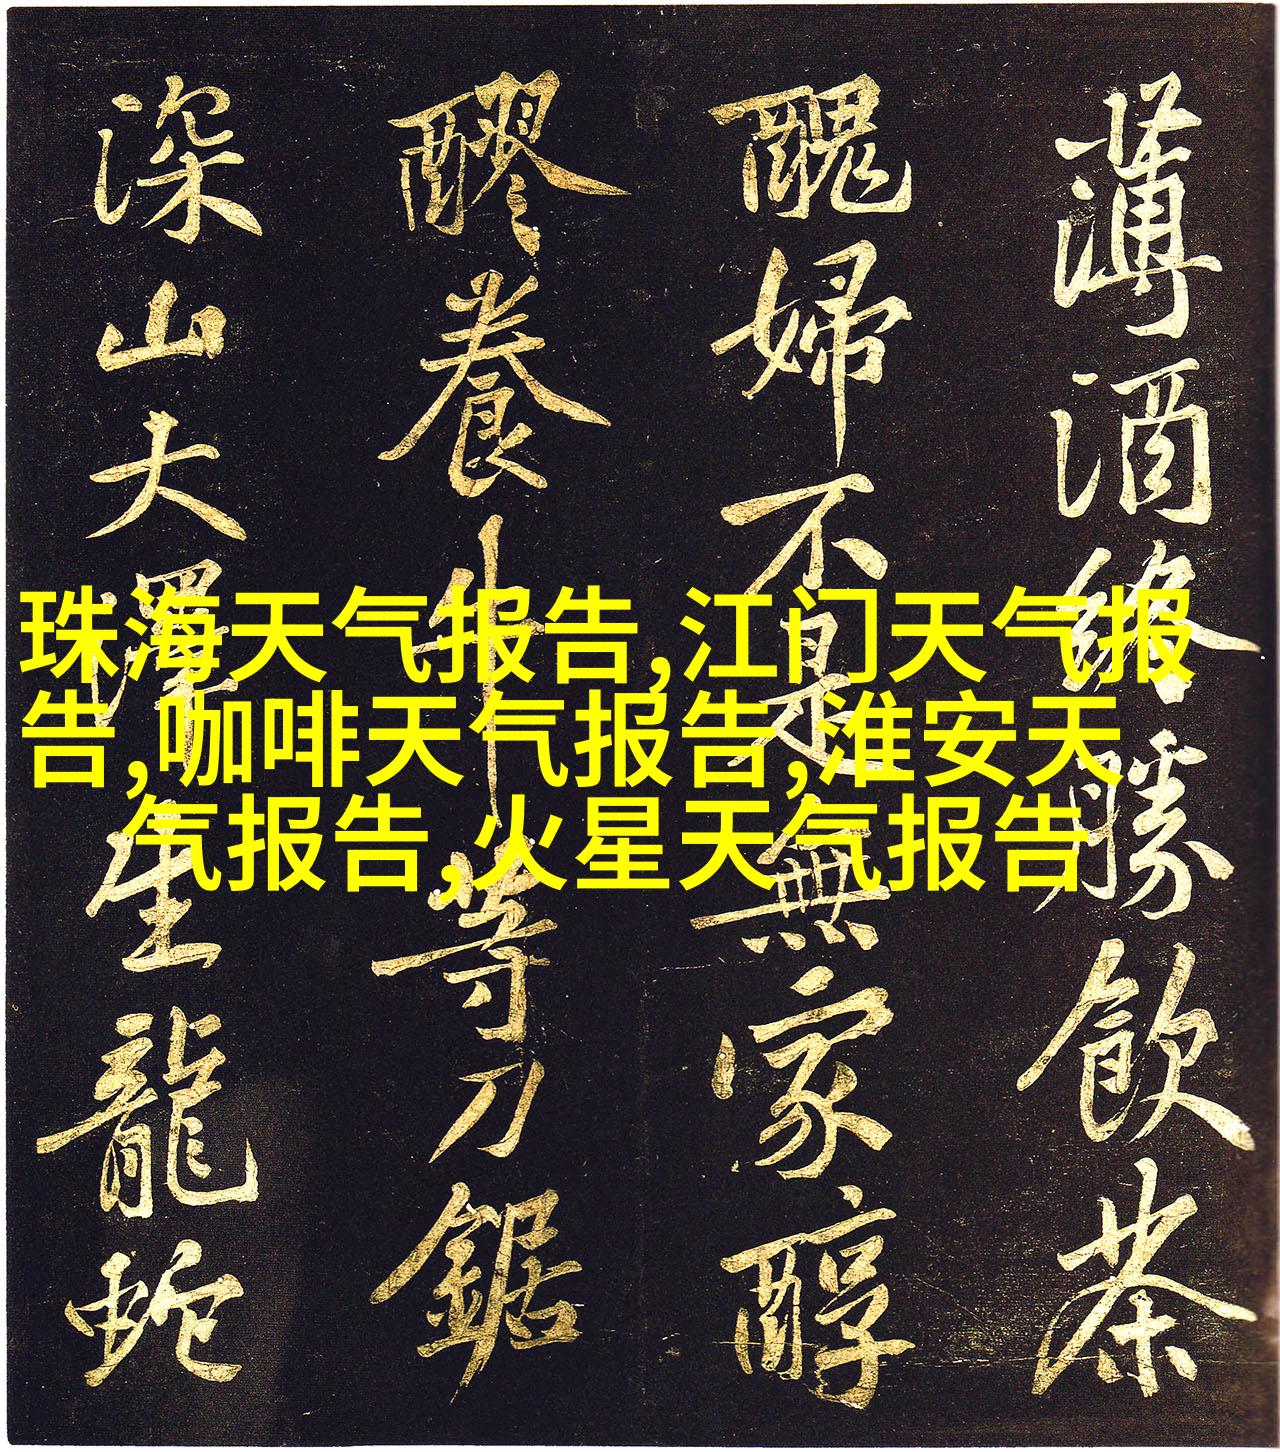 薄酒終勝飲茶
醜婦不是無家醇
醪養牛等刀鋸
深山大澤生龍蛇
珠海天气报告,江门天气报
告,咖啡天气报告,淮安天
气报告,火星天气报告